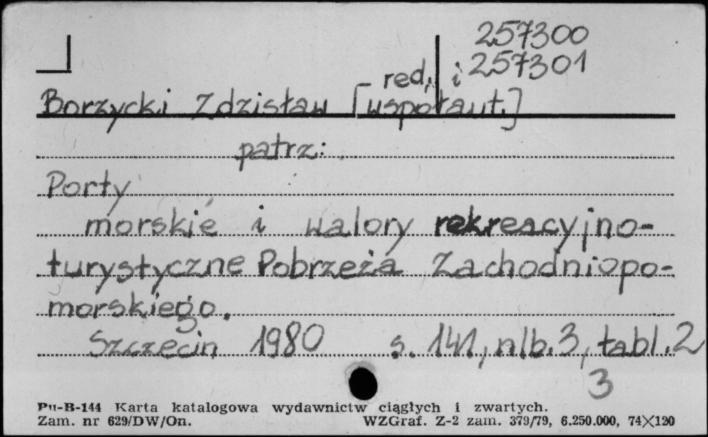 257300
257301
red. i
Borzycki Zdzisław [współaut.]
patrz:
Porty
morskie i walory rekreacyjno-
turystyczne Pobrzeża Zachodniopo-
morskiego.
Szczecin 1980 s. 141, nlb. 3, tabl. 2
3
Pu-B-144 Karta katalogowa wydawnictw ciągłych i zwartych.
Zam. nr 629/DW/On. WZGraf. Z-2 zam. 379/79, 6.250.000, 74×120